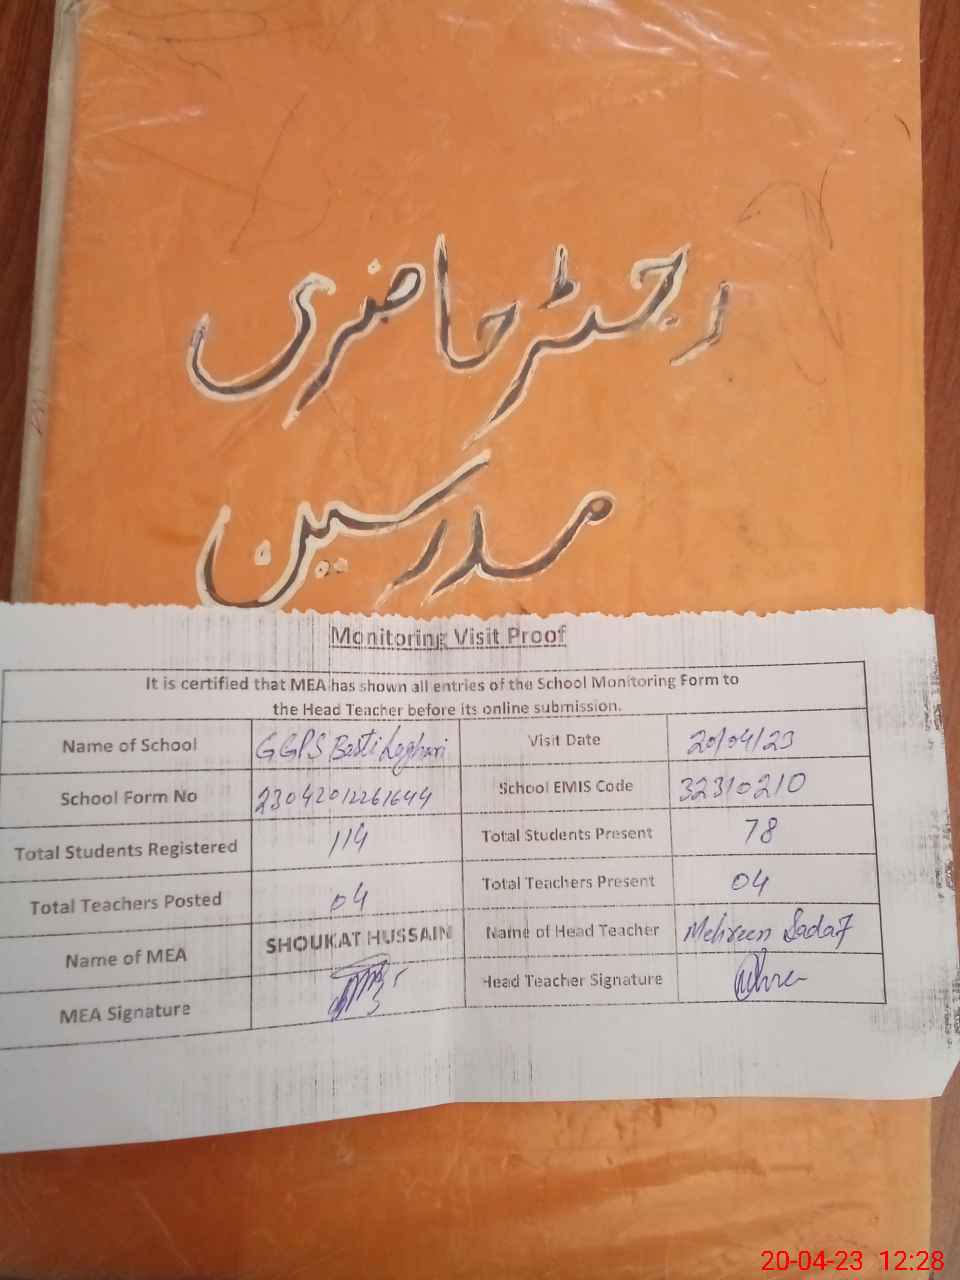 رجسٹر حاضری
مدرسین
Monitoring Visit Proof
It is certified that MEA has shown all entries of the School Monitoring Form to
the Head Teacher before its online submission.
Name of School GGPS Basti Leghari Visit Date 20/04/23
School Form No 23042012261644 School EMIS Code 32310210
Total Students Registered 114 Total Students Present 78
Total Teachers Posted 04 Total Teachers Present 04
Name of MEA SHOUKAT HUSSAIN Name of Head Teacher Mehreen Sadaf
MEA Signature Head Teacher Signature
20-04-23 12:28